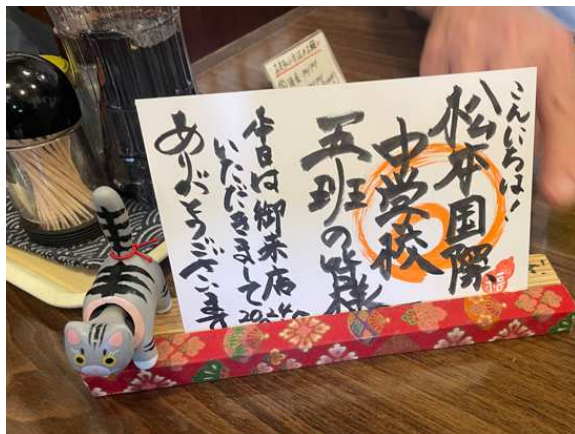 こんにちは!
松本国際
中学校
五班の皆様
本日は御来店
いただきまして
ありがとうございます
2024
福